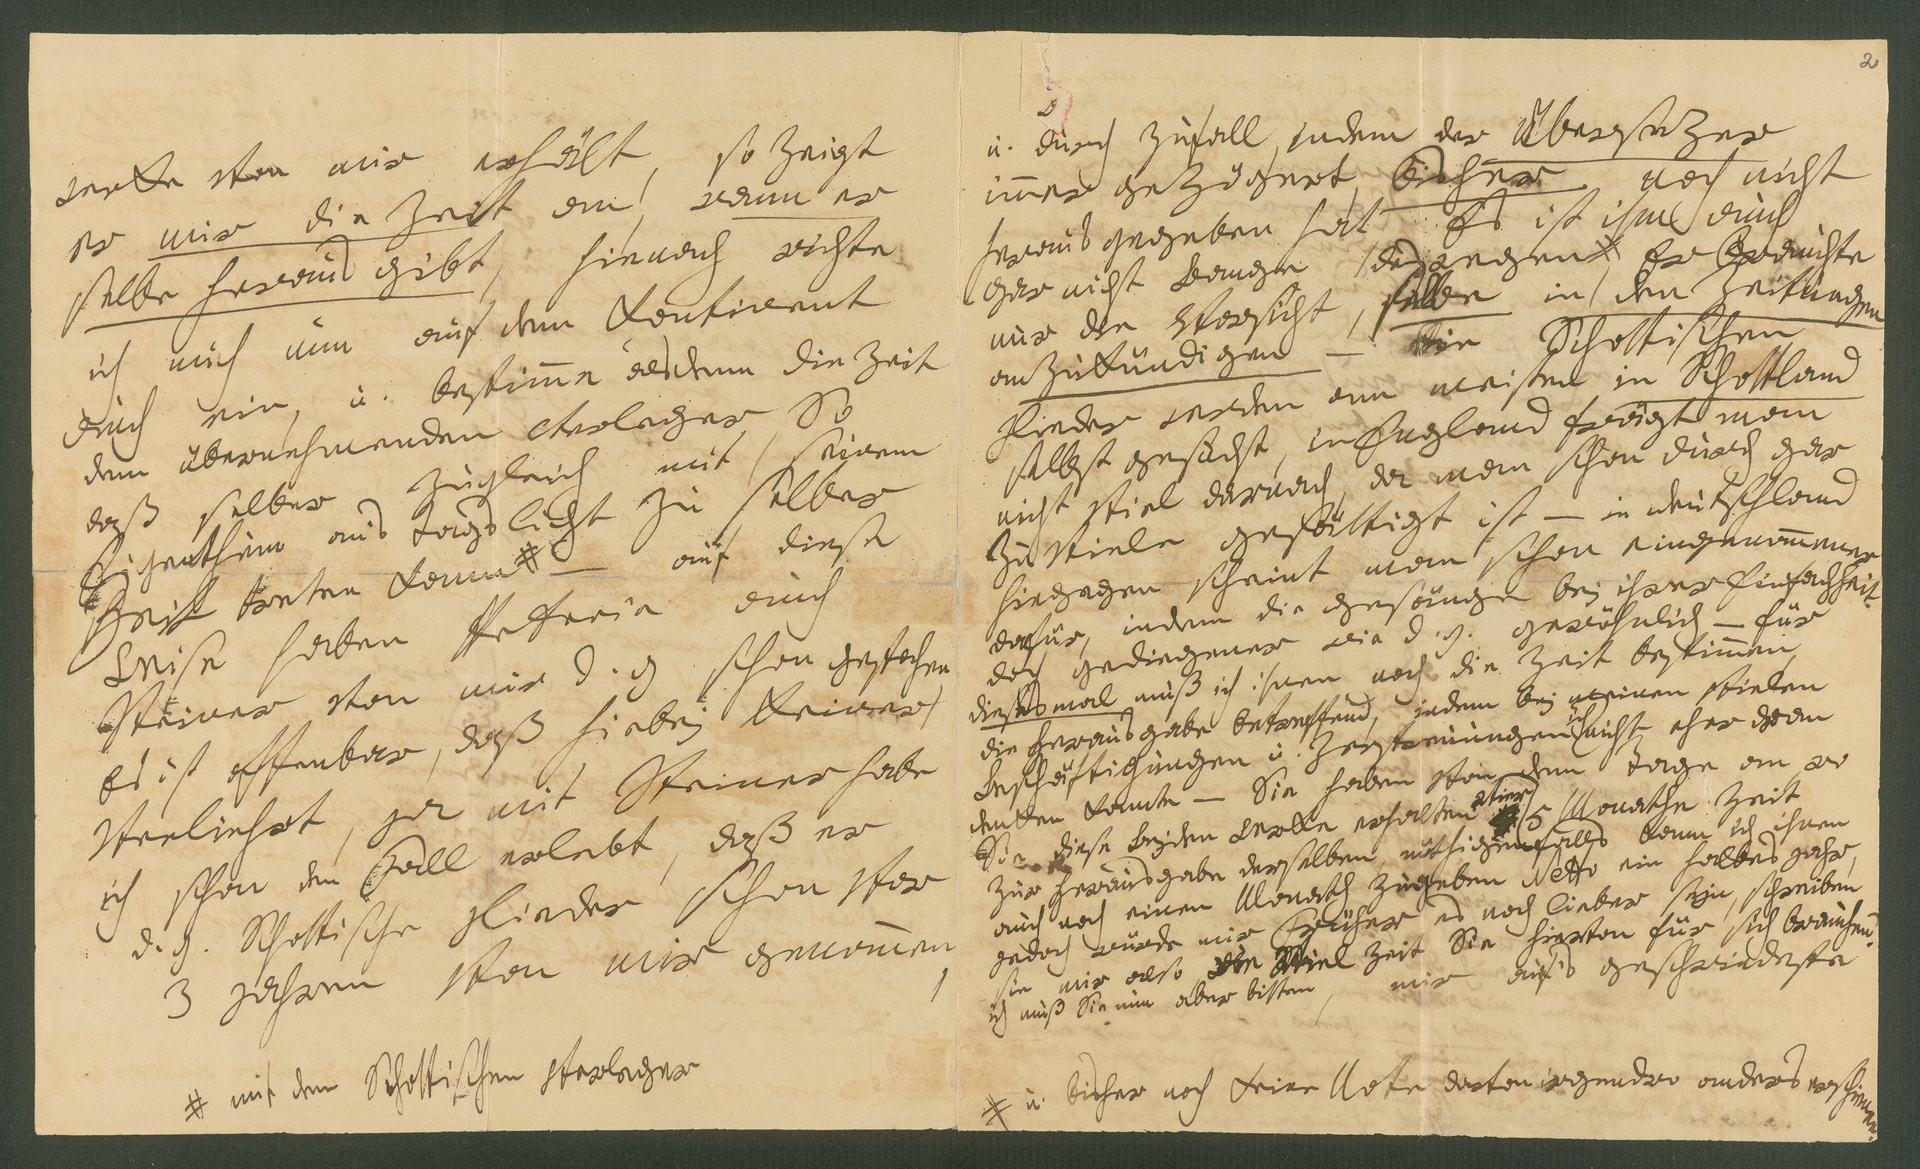 werke von mir erhält, so zeigt
er mir die Zeit an, wann er
selbe herausgibt, hienach richte
ich mich nun auf dem Kontinent
auch ein, u. bestimme alsdenn die Zeit
dem übernehmenden Verleger, So
daß selber zugleich mit seinem
Eigenthum ans Tagslicht zu selber
Zeit treten kann # — auf diese
Weise haben Artaria auch
Steiner von mir d. g. schon gestochen
Es ist offenbar, daß hiebey keiner
Verliehrt, ja mit Steiner habe
ich schon den Fall erlebt, daß er
d. g. Schottische Lieder schon vor
3 jahren von mir genommen,
# mit dem Schottischen Verleger
2
u. durch Zufall, indem der Übersezer
immer gezögert, bisher noch nicht
herausgegeben hat Es ist ihm auch
gar nicht bange deswegen #, Er brauchte
nur die Vorsicht, selbe in den Zeitungen
anzukündigen — die Schottischen
Lieder werden am meisten in Schottland
selbst gesucht, in England frägt man
nicht viel darnach, da man schon durch gar
zu viele gesättigt ist — in deutschland
hingegen scheint man schon eingenommener
dafür, indem die gesänge bey ihrer Einfachheit
doch gediegener wie d. g. gewöhnlich — für
diesesmal muß ich ihnen noch die Zeit bestimmen,
die Herausgabe betreffend, indem bey meinen vielen
Beschäftigungen u. Zerstreuungen ich nicht eher dran
denken konnte — Sie haben von dem Tage an wo
Sie diese beyden werke erhalten vier Monathe Zeit
zur Herausgabe derselben, nöthigenfalls kann ich ihnen
auch noch einen Monath zugeben Netto ein halbes jahr,
jedoch würde mir Früher es noch lieber seyn, schreiben
sie mir also wie Viel Zeit Sie hievon für sich brauchen?
ich muß Sie nun aber bitten, mir aufs geschwindeste
# u. bisher noch keine Note davon irgendwo anders erschienen.